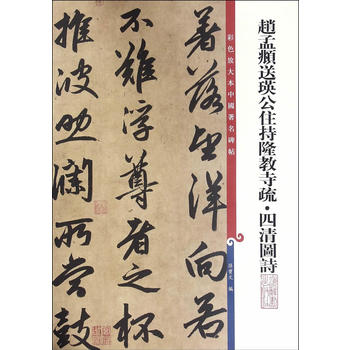 趙孟頫送瑛公住持隆教寺疏·四清圖詩
彩色放大本中國著名碑帖
孫寶文 編
著落望洋向若
不難浮尊者之杯
推波助瀾所賞鼓